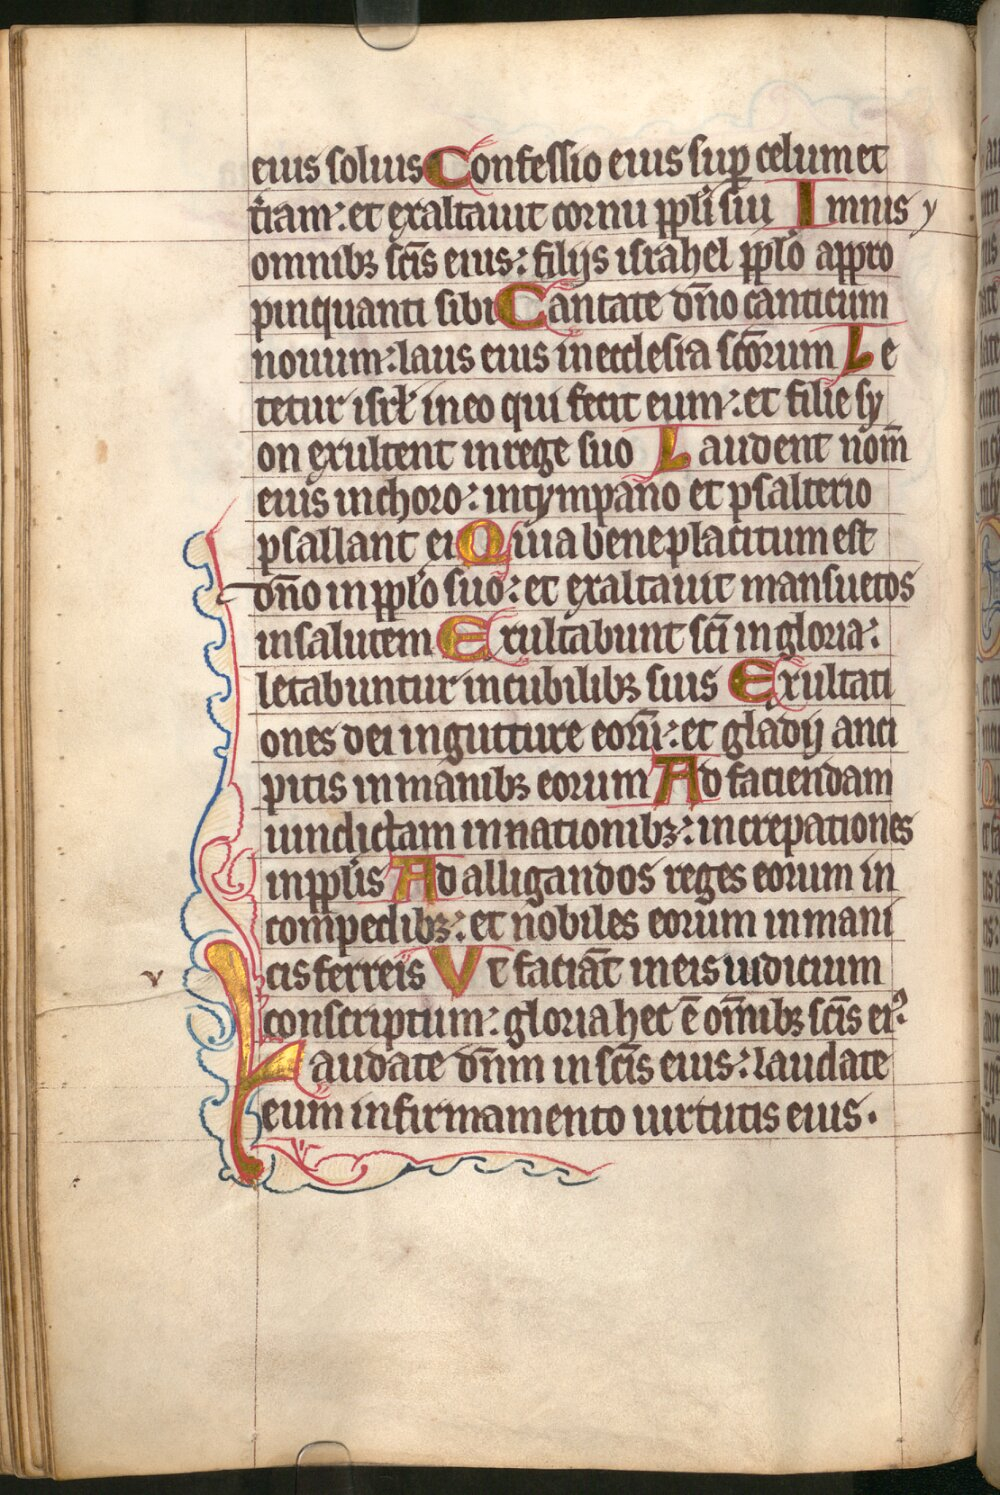 eius solius Confessio eius sup̲ celum et
t̄iam: et exaltauit cornu pp̲li sui Imnis y
omnibꝫ sc̄is eius: filijs israhel pp̲lo appro
pinquanti sibi Cantate dn̄o canticum
nouum: laus eius in ecclesia sc̄orum Le
tetur isrl̄ in eo qui fecit eum: et filie sy
on exultent in rege suo Laudent nom̄
eius in choro: in tympano et psalterio
psallant ei Quia beneplacitum est
dn̄o in pp̲lo suo: et exaltauit mansuetos
in salutem Exultabunt sc̄i in gloria:
letabuntur in cubilibꝫ suis Exultati
ones dei in gutture eorū: et gladij anci
pitis in manibꝫ eorum Ad faciendam
uindictam in nationibꝫ: increpationes
in pp̲lis Ad alligandos reges eorum in
compedibꝫ: et nobiles eorum in mani
cis ferreis Vt faciāt in eis iudicium
v
conscriptum: gloria hec ē om̄ibꝫ sc̄is eiꝰ.
Laudate dn̄m in sc̄is eius: laudate
eum in firmamento uirtutis eius.